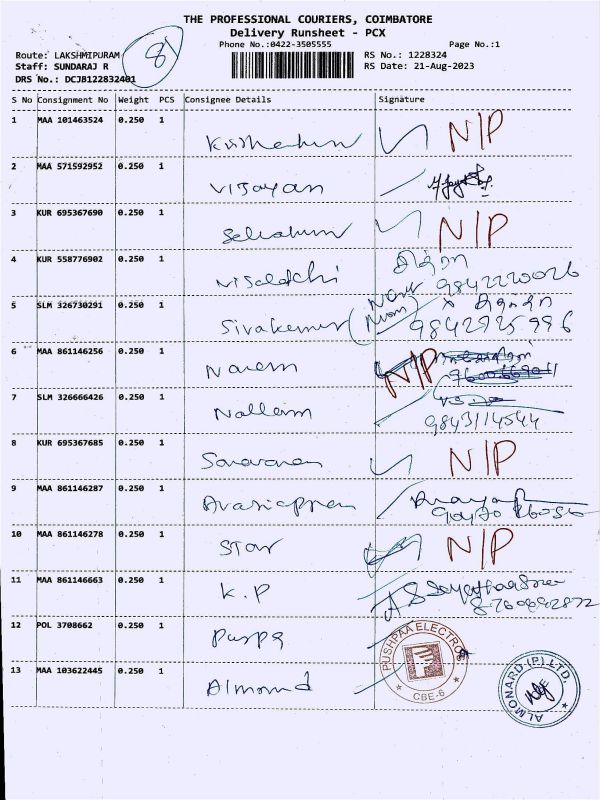 THE PROFESSIONAL COURIERS, COIMBATORE
Delivery Runsheet - PCX
Phone No.:0422-3505555 Page No.:1
Route: LAKSHMIPURAM 8 RS No.: 1228324
Staff: SUNDARAJ R RS Date: 21-Aug-2023
DRS No.: DCJB122832401
S No Consignment No Weight PCS Consignee Details Signature
1 MAA 101463524 0.250 1 N/P
2 MAA 571592952 0.250 1 Vijayan
3 KUR 695367690 0.250 1 N/P
4 KUR 558776902 0.250 1 Visalatchi
9842220026
5 SLM 326730291 0.250 1 Sivakumar
9842925996
6 MAA 861146256 0.250 1 Naren N/P
7 SLM 326666426 0.250 1
9843114544
8 KUR 695367685 0.250 1 Saravanan N/P
9 MAA 861146287 0.250 1
10 MAA 861146278 0.250 1 Star N/P
11 MAA 861146663 0.250 1 K.P
12 POL 3708662 0.250 1 Puspa
PUSHPAA ELECTROS
CBE-6
13 MAA 103622445 0.250 1 Almond
ALMONARD (P) LTD.